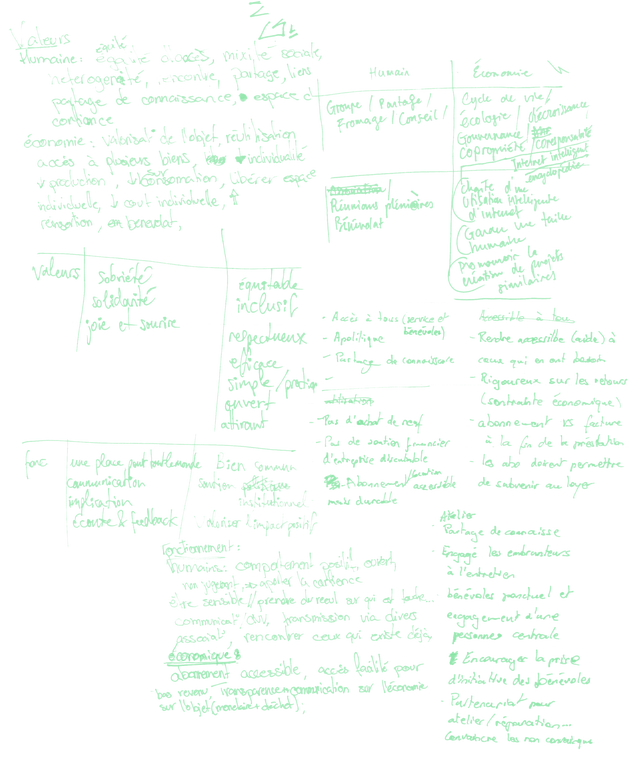 Valeurs
équité
Humaine: d'accès, mixité sociale,
hétérogénéité, rencontre, partage, liens
partage de connaissance, espace d
confiance
économie: valorisat° de l'objet, réutilisation
accès à plusieurs biens, individualité
↓ production, ↓ consommation, libérer espace
individuelle, ↓ cout individuelle,
bénévolat,
Humain
Économie
Groupe / Partage /
Fromage / Conseil /
Cycle de vie /
écologie / décroissance
Gouvernance /
copropriété / coresponsabilité
Internet intelligent
encyclopédie
Réunions plénières
Bénévolat
Charte d'une
utilisation intelligente
d'internet
Garder une taille
humaine
Promouvoir la
création de projets
similaires
Valeurs
sobriété
solidarité
joie et sourire
équitable
inclusif
respectueux
efficace
simple / pratique
ouvert
attirant
- Accès à tous (service et
bénévoles)
- Apolitique
- Partage de connaissance
-
utilisation
- Pas d'achat de neuf
- Pas de soutien financier
d'entreprise discutable
- Abonnement / accessible
mais durable
Accessible à tous
- Rendre accessible (aide) à
ceux qui en ont besoin
- Rigoureux sur les retours
(centralité économique)
- abonnement VS facture
à la fin de la prestation
- les abo doivent permettre
de subvenir au loyer
fonc
une place pour tout le monde
communication
implication
écoute & feedback
Bien commun
soutien politique
institutionnel
valoriser l'impact positif
Fonctionnement:
humains: comportement positif, ouvert,
non jugeant, la confiance
être sensible / prendre du recul sur qui est
communicat°, transmission via divers
rencontrer ceux qui existe déjà,
économique:
abonnement accessible, accès facilité pour
bas revenu, transparence + communication sur l'économie
sur l'objet (monétaire + déchet),
Atelier
- Partage de connaisse
- Engagé les emprunteurs
à l'entretien
- bénévoles ponctuel et
engagement d'une
personne centrale
- Encourager la prise
d'initiative des bénévoles
- Partenariat pour
atelier / réparation...
Convaincre les non convaincus